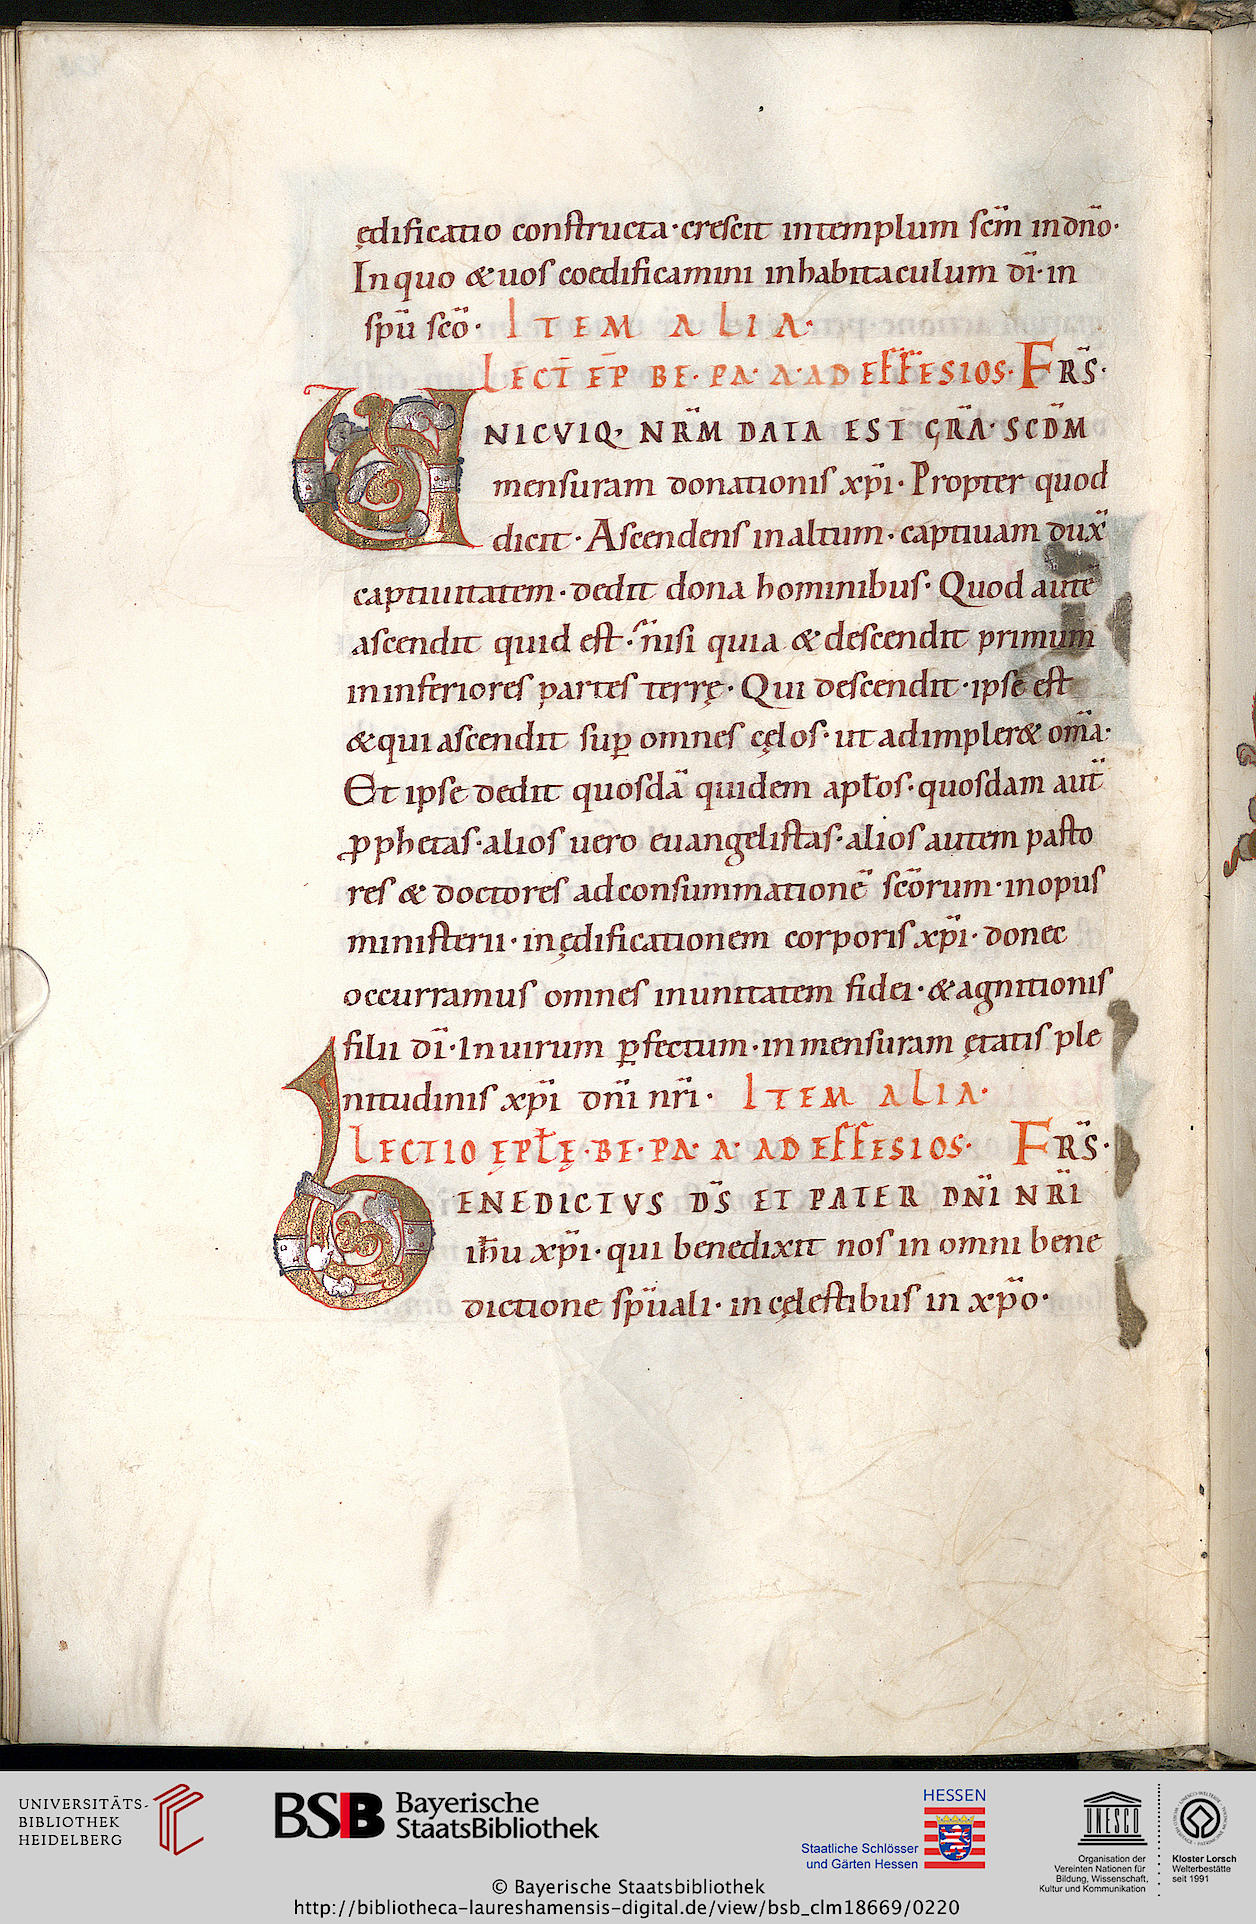 ędificatio constructa · crescit intemplum scm̄ indño ·
Inquo & uos coedificamini inhabitaculum dī · in
spū scō · ITEM ALIA ·
LECT̄ EP̄ BE · PA · A · AD EFFESIOS · FRS̄ ·
UNICVIQ · NRM̄ DATA EST GRĀ · SCDM̄
mensuram donationis xp̄i · Propter quod
dicit · Ascendens inaltum · captiuam dux̄
captiuitatem · dedit dona hominibus · Quod autē
ascendit quid est · nisi quia & descendit primum
ininferiores partes terrę · Qui descendit · ipse est
& qui ascendit sup̱ omnes cęlos · ut adimpler& om̄a ·
Et ipse dedit quosdā quidem apł̄os · quosdam aut̄
ꝓphetas · alios uero euangelistas · alios autem pasto
res & doctores adconsummationē scōrum · inopus
ministerii · inędificationem corporis xp̄i · donec
occurramus omnes inunitatem fidei · & agnitionis
filii dī · Inuirum ꝑfectum · inmensuram ętatis ple
nitudinis xp̄i dñi nr̄i · ITEM ALIA ·
LECTIO ĘPŁĘ · BE · PA · A · AD EFFESIOS · FRS̄ ·
BENEDICTVS DS̄ ET PATER DÑI NR̄I
ih̄u xp̄i · qui benedixit nos in omni bene
dictione sp̄uali · in cęlestibus in xp̄o ·
UNIVERSITÄTS-
BIBLIOTHEK
HEIDELBERG
BSB Bayerische
StaatsBibliothek
HESSEN
Staatliche Schlösser
und Gärten Hessen
UNESCO
Organisation der
Vereinten Nationen für
Bildung, Wissenschaft,
Kultur und Kommunikation
Kloster Lorsch
Welterbestätte
seit 1991
© Bayerische Staatsbibliothek
http://bibliotheca-laureshamensis-digital.de/view/bsb_clm18669/0220